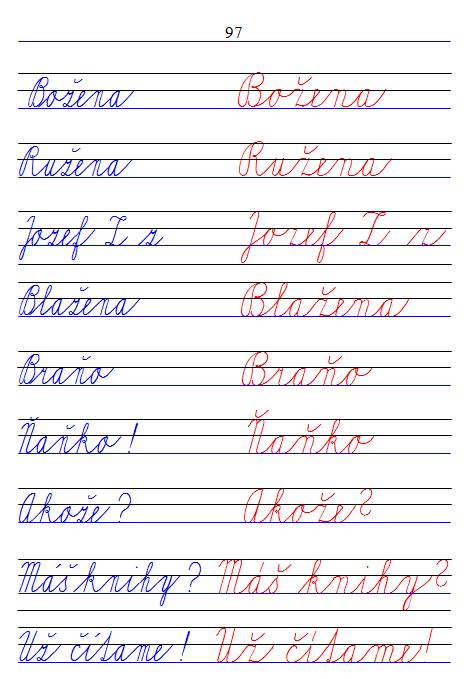 97
Božena Božena
Ružena Ružena
Jozef Z z Jozef Z z
Blažena Blažena
Braňo Braňo
Ňaňko! Ňaňko
Akože? Akože?
Máš knihy? Máš knihy?
Už čítame! Už čítame!